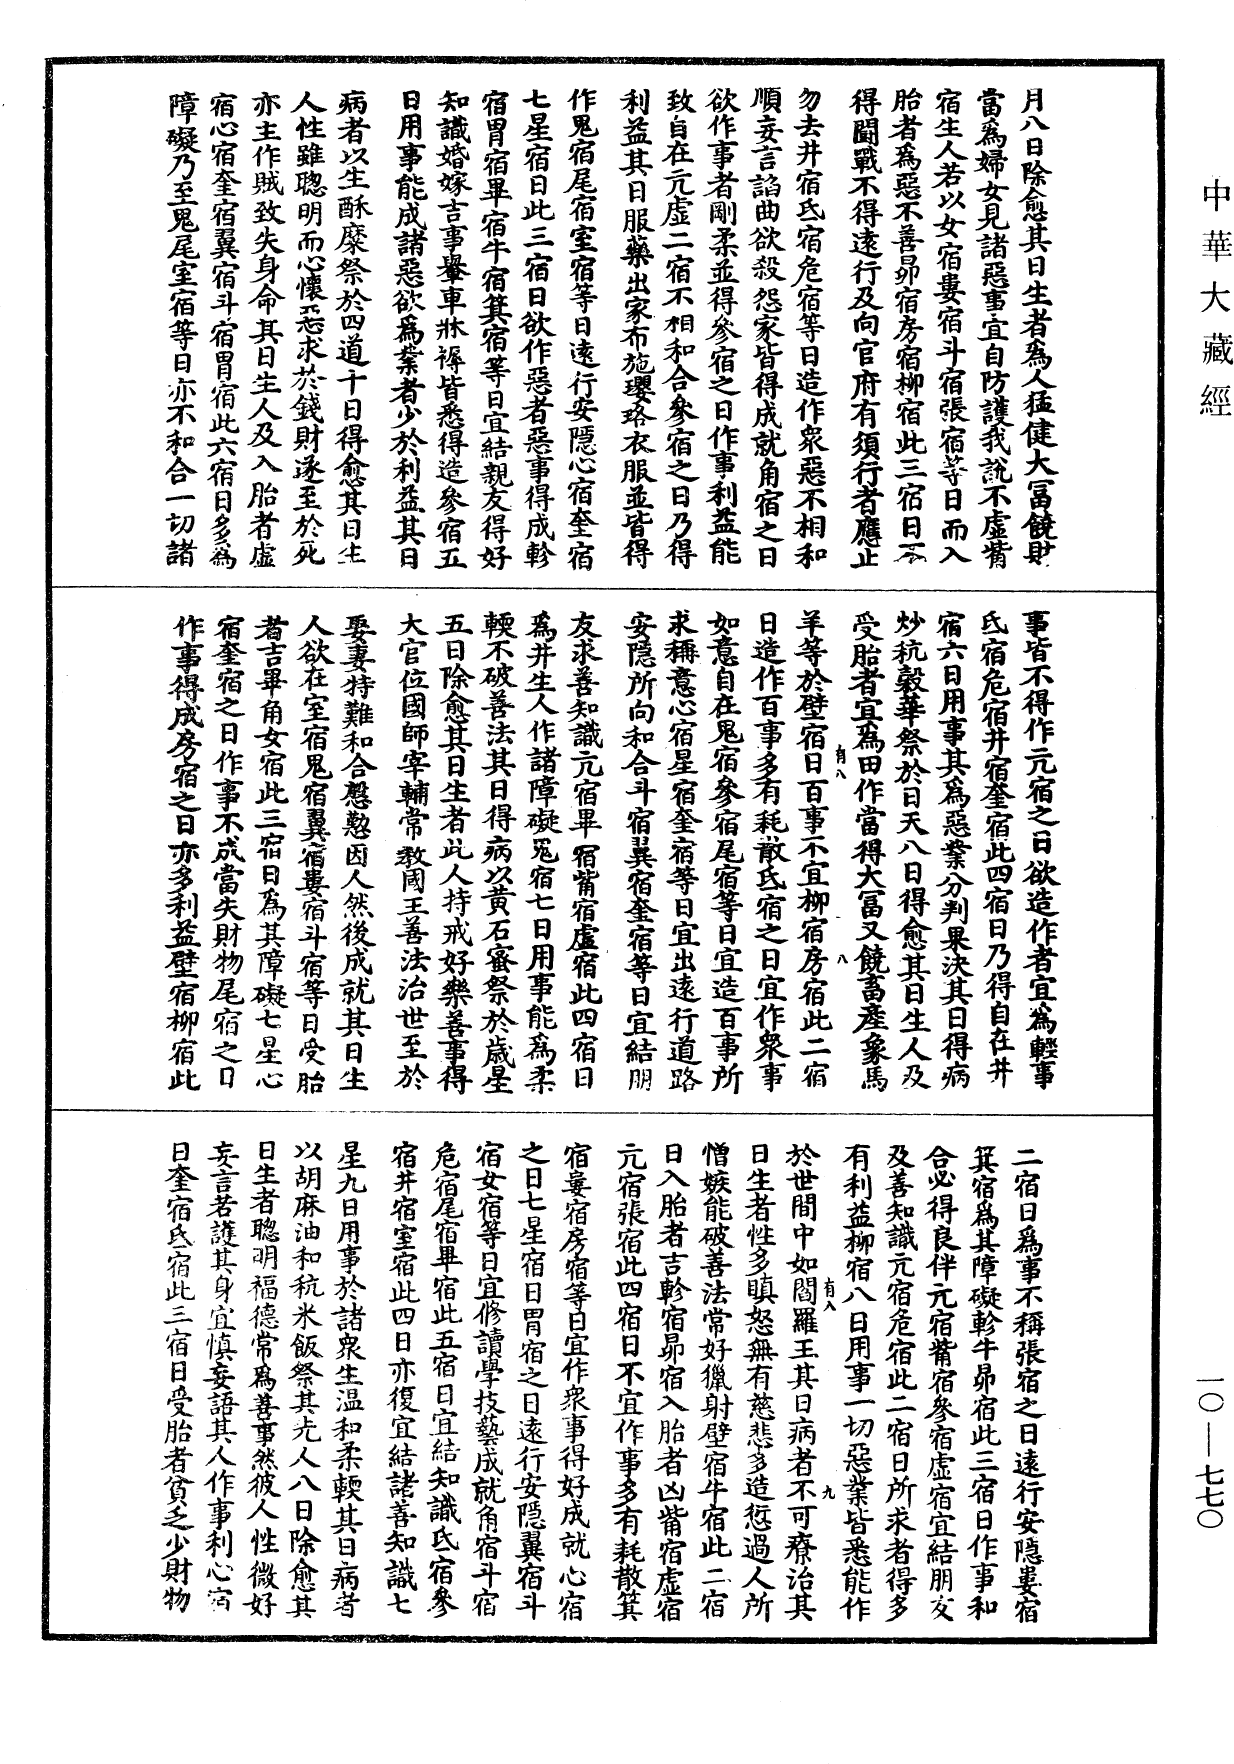 中華大藏經
月八日除愈其日生者爲人猛健大冨饒財
當爲婦女見諸惡事宜自防護我說不虛觜
宿生人若以女宿婁宿斗宿張宿等日而入
胎者爲惡不善昴宿房宿柳宿此三宿日不
得鬪戰不得遠行及向官府有須行者應止
勿去井宿氐宿危宿等日造作衆惡不相和
順妄言諂曲欲殺怨家皆得成就角宿之日
欲作事者剛柔並得參宿之日作事利益能
致自在亢虛二宿不相和合參宿之日乃得
利益其日服藥出家布施瓔珞衣服並皆得
作鬼宿尾宿室宿等日遠行安隱心宿奎宿
七星宿日此三宿日欲作惡者惡事得成軫
宿胃宿畢宿牛宿箕宿等日宜結親友得好
知識婚嫁吉事轝車牀褥皆悉得造參宿五
日用事能成諸惡欲爲業者少於利益其日
病者以生酥糜祭於四道十日得愈其日生
人性雖聰明而心懷惡求於錢財遂至於死
亦主作賊致失身命其日生人及入胎者虛
宿心宿奎宿翼宿斗宿胃宿此六宿日多爲
障礙乃至鬼尾室宿等日亦不和合一切諸
事皆不得作亢宿之日欲造作者宜爲輕事
氐宿危宿井宿奎宿此四宿日乃得自在井
宿六日用事其爲惡業分判果決其日得病
炒秔穀華祭於日天八日得愈其日生人及
受胎者宜爲田作當得大冨又饒畜產象馬
羊等於壁宿日百事不宜柳宿房宿此二宿
日造作百事多有耗散氐宿之日宜作衆事
如意自在鬼宿參宿尾宿等日宜造百事所
求稱意心宿星宿奎宿等日宜出遠行道路
安隱所向和合斗宿翼宿奎宿等日宜結朋
友求善知識亢宿畢宿觜宿虛宿此四宿日
爲井生人作諸障礙鬼宿七日用事能爲柔
輭不破善法其日得病以黃石蜜祭於歲星
五日除愈其日生者此人持戒好樂善事得
大官位國師宰輔常教國王善法治世至於
娶妻特難和合慇懃因人然後成就其日生
人欲在室宿鬼宿翼宿婁宿斗宿等日受胎
者吉畢角女宿此三宿日爲其障礙七星心
宿奎宿之日作事不成當失財物尾宿之日
作事得成房宿之日亦多利益壁宿柳宿此
二宿日爲事不稱張宿之日遠行安隱婁宿
箕宿爲其障礙軫牛昴宿此三宿日作事和
合必得良伴亢宿觜宿參宿虛宿宜結朋友
及善知識亢宿危宿此二宿日所求者得多
有利益柳宿八日用事一切惡業皆悉能作
於世間中如閻羅王其日病者不可療治其
日生者性多瞋怒無有慈悲多造愆過人所
憎嫉能破善法常好獵射壁宿牛宿此二宿
日入胎者吉軫宿昴宿入胎者凶觜宿虛宿
亢宿張宿此四宿日不宜作事多有耗散箕
宿婁宿房宿等日宜作衆事得好成就心宿
之日七星宿日胃宿之日遠行安隱翼宿斗
宿女宿等日宜修讀學技藝成就角宿斗宿
危宿尾宿畢宿此五宿日宜結知識氐宿參
宿井宿室宿此四日亦復宜結諸善知識七
星九日用事於諸衆生温和柔輭其日病者
以胡麻油和秔米飯祭其先人八日除愈其
日生者聰明福德常爲善事然彼人性微好
妄言若護其身宜慎妄語其人作事利心宿
日奎宿氐宿此三宿日受胎者貧乏少財物
一〇—七七〇